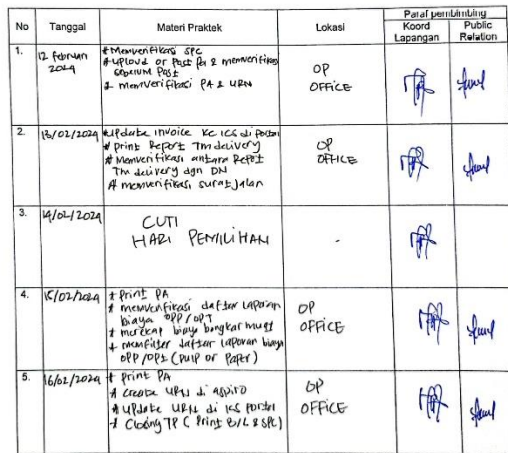 No Tanggal Materi Praktek Lokasi Paraf pembimbing
Koord Lapangan Public Relation
1. 12 februari 2024
* Memverifikasi SPC
* upload or Post PA & memverifikasi
sebelum Post
& memverifikasi PA & URN
OP
OFFICE
2. 13/02/2024
* update invoice ke ICS di portal
* print Report Tm delivery
* Memverifikasi antara Report
Tm delivery dgn DN
* memverifikasi surat jalan
OP
OFFICE
3. 14/02/2024
CUTI
HARI PEMILIHAN
-
4. 15/02/2024
* Print PA
* memverifikasi daftar laporan
biaya OPP/OPT
* merekap biaya bongkar muat
* memfilter daftar laporan biaya
OPP/OPT (Pulp or Paper)
OP
OFFICE
5. 16/02/2024
* Print PA
* Create URN di aspiro
* update URN di ICS portal
* Closing TP ( Print B/L & SPC)
OP
OFFICE